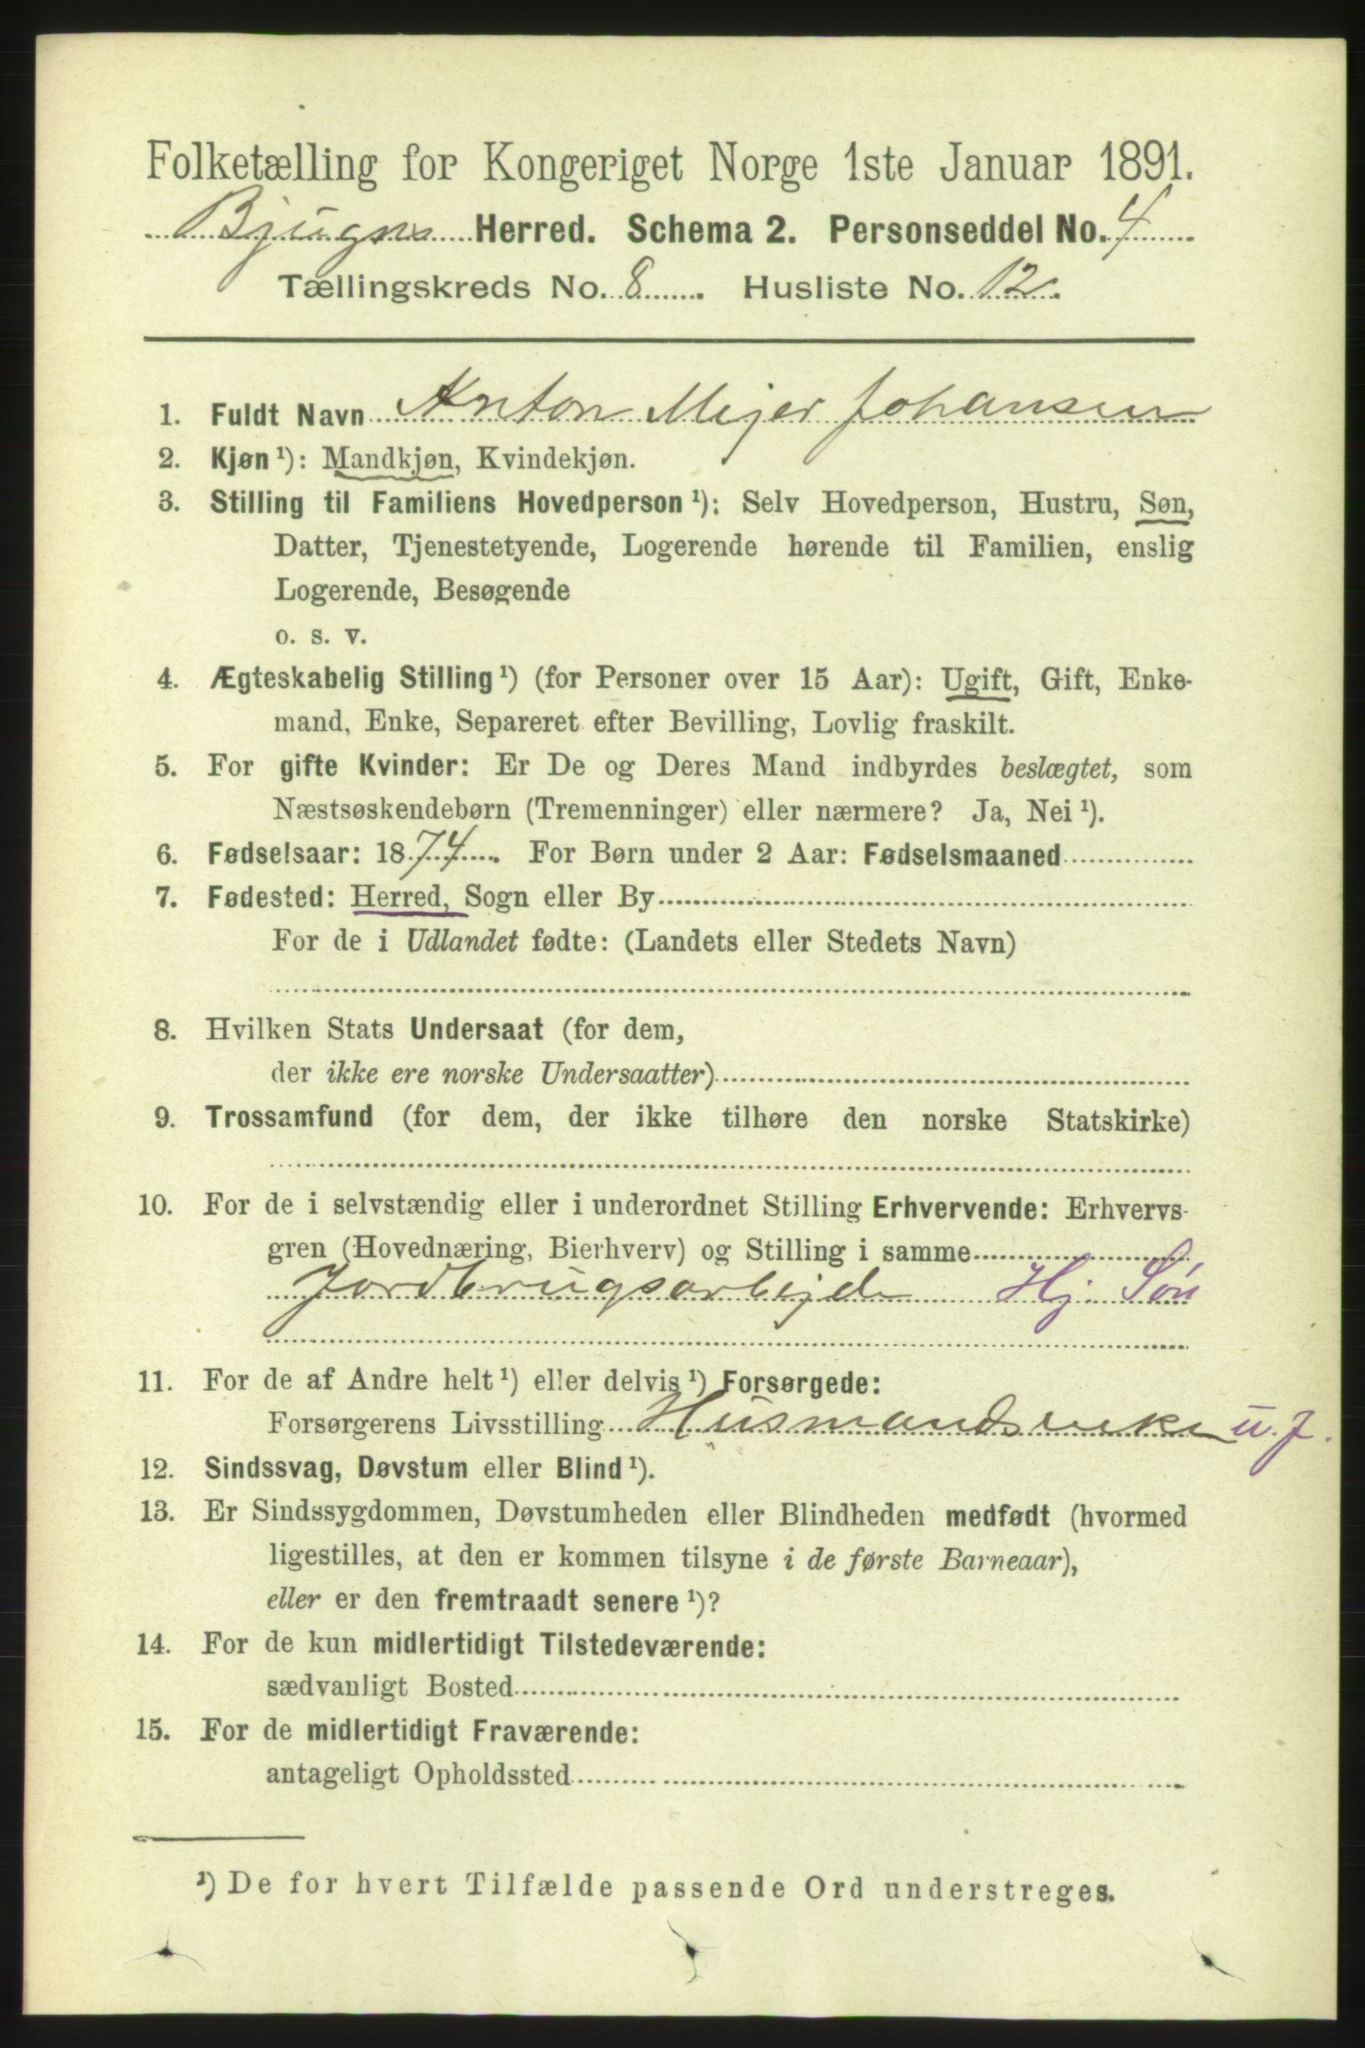 Folketælling for Kongeriget Norge 1ste Januar 1891.
Bjugns Herred. Schema 2. Personseddel No. 4
Tællingskreds No. 8. Husliste No. 12.
1. Fuldt Navn Anton Mejer Johansen
2. Kjøn ¹): Mandkjøn, Kvindekjøn.
3. Stilling til Familiens Hovedperson ¹): Selv Hovedperson, Hustru, Søn,
Datter, Tjenestetyende, Logerende hørende til Familien, enslig
Logerende, Besøgende
o. s. v.
4. Ægteskabelig Stilling ¹) (for Personer over 15 Aar): Ugift, Gift, Enke-
mand, Enke, Separeret efter Bevilling, Lovlig fraskilt.
5. For gifte Kvinder: Er De og Deres Mand indbyrdes beslægtet, som
Næstsøskendebørn (Tremenninger) eller nærmere? Ja, Nei ¹).
6. Fødselsaar: 1874. For Børn under 2 Aar: Fødselsmaaned
7. Fødested: Herred, Sogn eller By
For de i Udlandet fødte: (Landets eller Stedets Navn)
8. Hvilken Stats Undersaat (for dem,
der ikke ere norske Undersaatter)
9. Trossamfund (for dem, der ikke tilhøre den norske Statskirke)
10. For de i selvstændig eller i underordnet Stilling Erhvervende: Erhvervs-
gren (Hovednæring, Bierhverv) og Stilling i samme
Jordbrugsarbejde Hj. Søn
11. For de af Andre helt ¹) eller delvis ¹) Forsørgede:
Forsørgerens Livsstilling Husmandsenke u. J.
12. Sindssvag, Døvstum eller Blind ¹).
13. Er Sindssygdommen, Døvstumheden eller Blindheden medfødt (hvormed
ligestilles, at den er kommen tilsyne i de første Barneaar),
eller er den fremtraadt senere ¹)?
14. For de kun midlertidigt Tilstedeværende:
sædvanligt Bosted
15. For de midlertidigt Fraværende:
antageligt Opholdssted
¹) De for hvert Tilfælde passende Ord understreges.